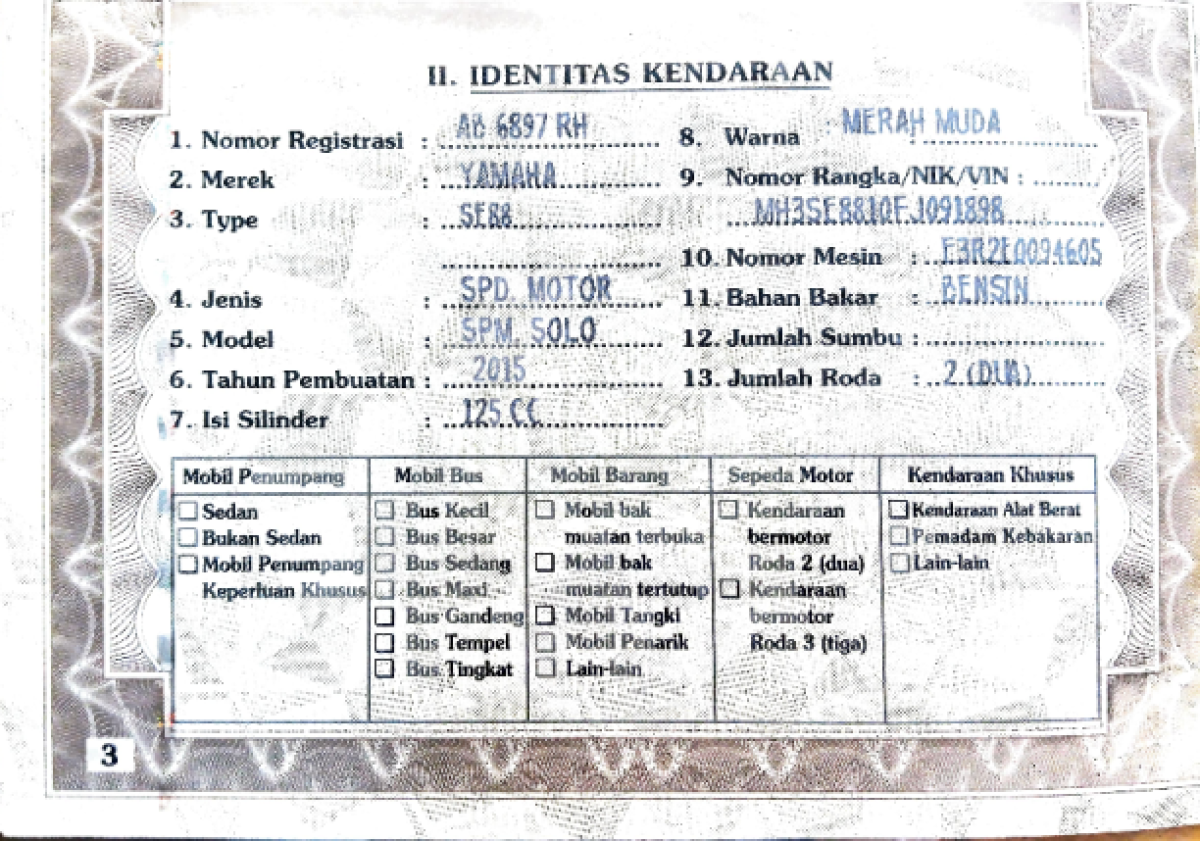 II. IDENTITAS KENDARAAN
1. Nomor Registrasi : AB 6897 RH
2. Merek : YAMAHA
3. Type : SE88
4. Jenis : SPD. MOTOR
5. Model : SPM. SOLO
6. Tahun Pembuatan : 2015
7. Isi Silinder : 125 CC
8. Warna : MERAH MUDA
9. Nomor Rangka/NIK/VIN :
MH3SE8810FJ091898
10. Nomor Mesin : E3R2E0094605
11. Bahan Bakar : BENSIN
12. Jumlah Sumbu :
13. Jumlah Roda : 2 (DUA)
Mobil Penumpang
Sedan
Bukan Sedan
Mobil Penumpang
Keperluan Khusus
Mobil Bus
Bus Kecil
Bus Besar
Bus Sedang
Bus Maxi
Bus Gandeng
Bus Tempel
Bus Tingkat
Mobil Barang
Mobil bak
muatan terbuka
Mobil bak
muatan tertutup
Mobil Tangki
Mobil Penarik
Lain-lain
Sepeda Motor
Kendaraan
bermotor
Roda 2 (dua)
Kendaraan
bermotor
Roda 3 (tiga)
Kendaraan Khusus
Kendaraan Alat Berat
Pemadam Kebakaran
Lain-lain
3